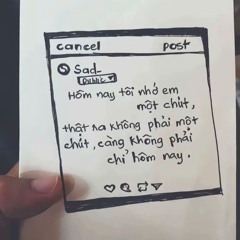 cancel post
Sad_
Public
Hôm nay tôi nhớ em
một chút,
thật ra không phải một
chút, càng không phải
chỉ hôm nay.